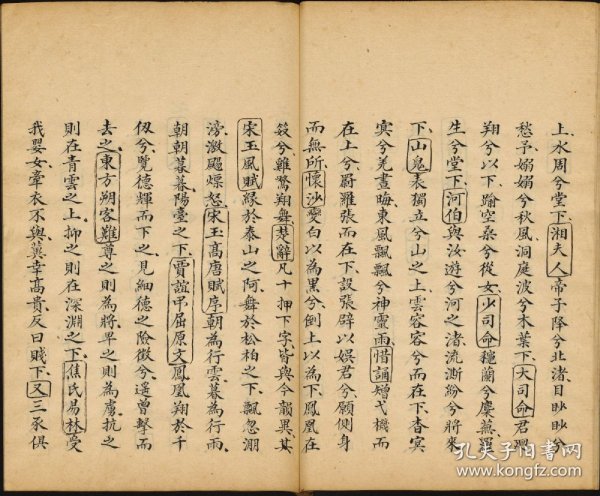 上水周兮堂下湘夫人帝子降兮北渚目眇眇兮
愁予嫋嫋兮秋風洞庭波兮木葉下大司命君迴
翔兮以下踰空桑兮從女少司命穐蘭兮麋蕪羅
生兮堂下河伯與汝遊兮河之渚流澌紛兮將來
下山鬼表獨立兮山之上雲容容兮而在下杳冥
冥兮羌晝晦東風飄飄兮神靈雨惜誦矰弋機而
在上兮罻羅張而在下設張辟以娛君兮願側身
而無所懷沙變白以為黑兮倒上以為下鳳凰在
笯兮雞鶩翔舞楚辭凡十押下字皆與今韻異其
宋玉風賦緣於泰山之阿舞於松柏之下飄忽淜
滂激颺熛怒宋玉高唐賦序朝為行雲暮為行雨
朝朝暮暮陽臺之下賈誼弔屈原文鳳凰翔於千
仭兮覽德輝而下之見細德之險徵兮遙曾擊而
去之東方朔客難尊之則為將卑之則為虜抗之
則在青雲之上抑之則在深淵之下焦氏易林受
我嬰女牽衣不與冀幸高貴反曰賤下又三承俱
孔夫子旧书网
www.kongfz.com